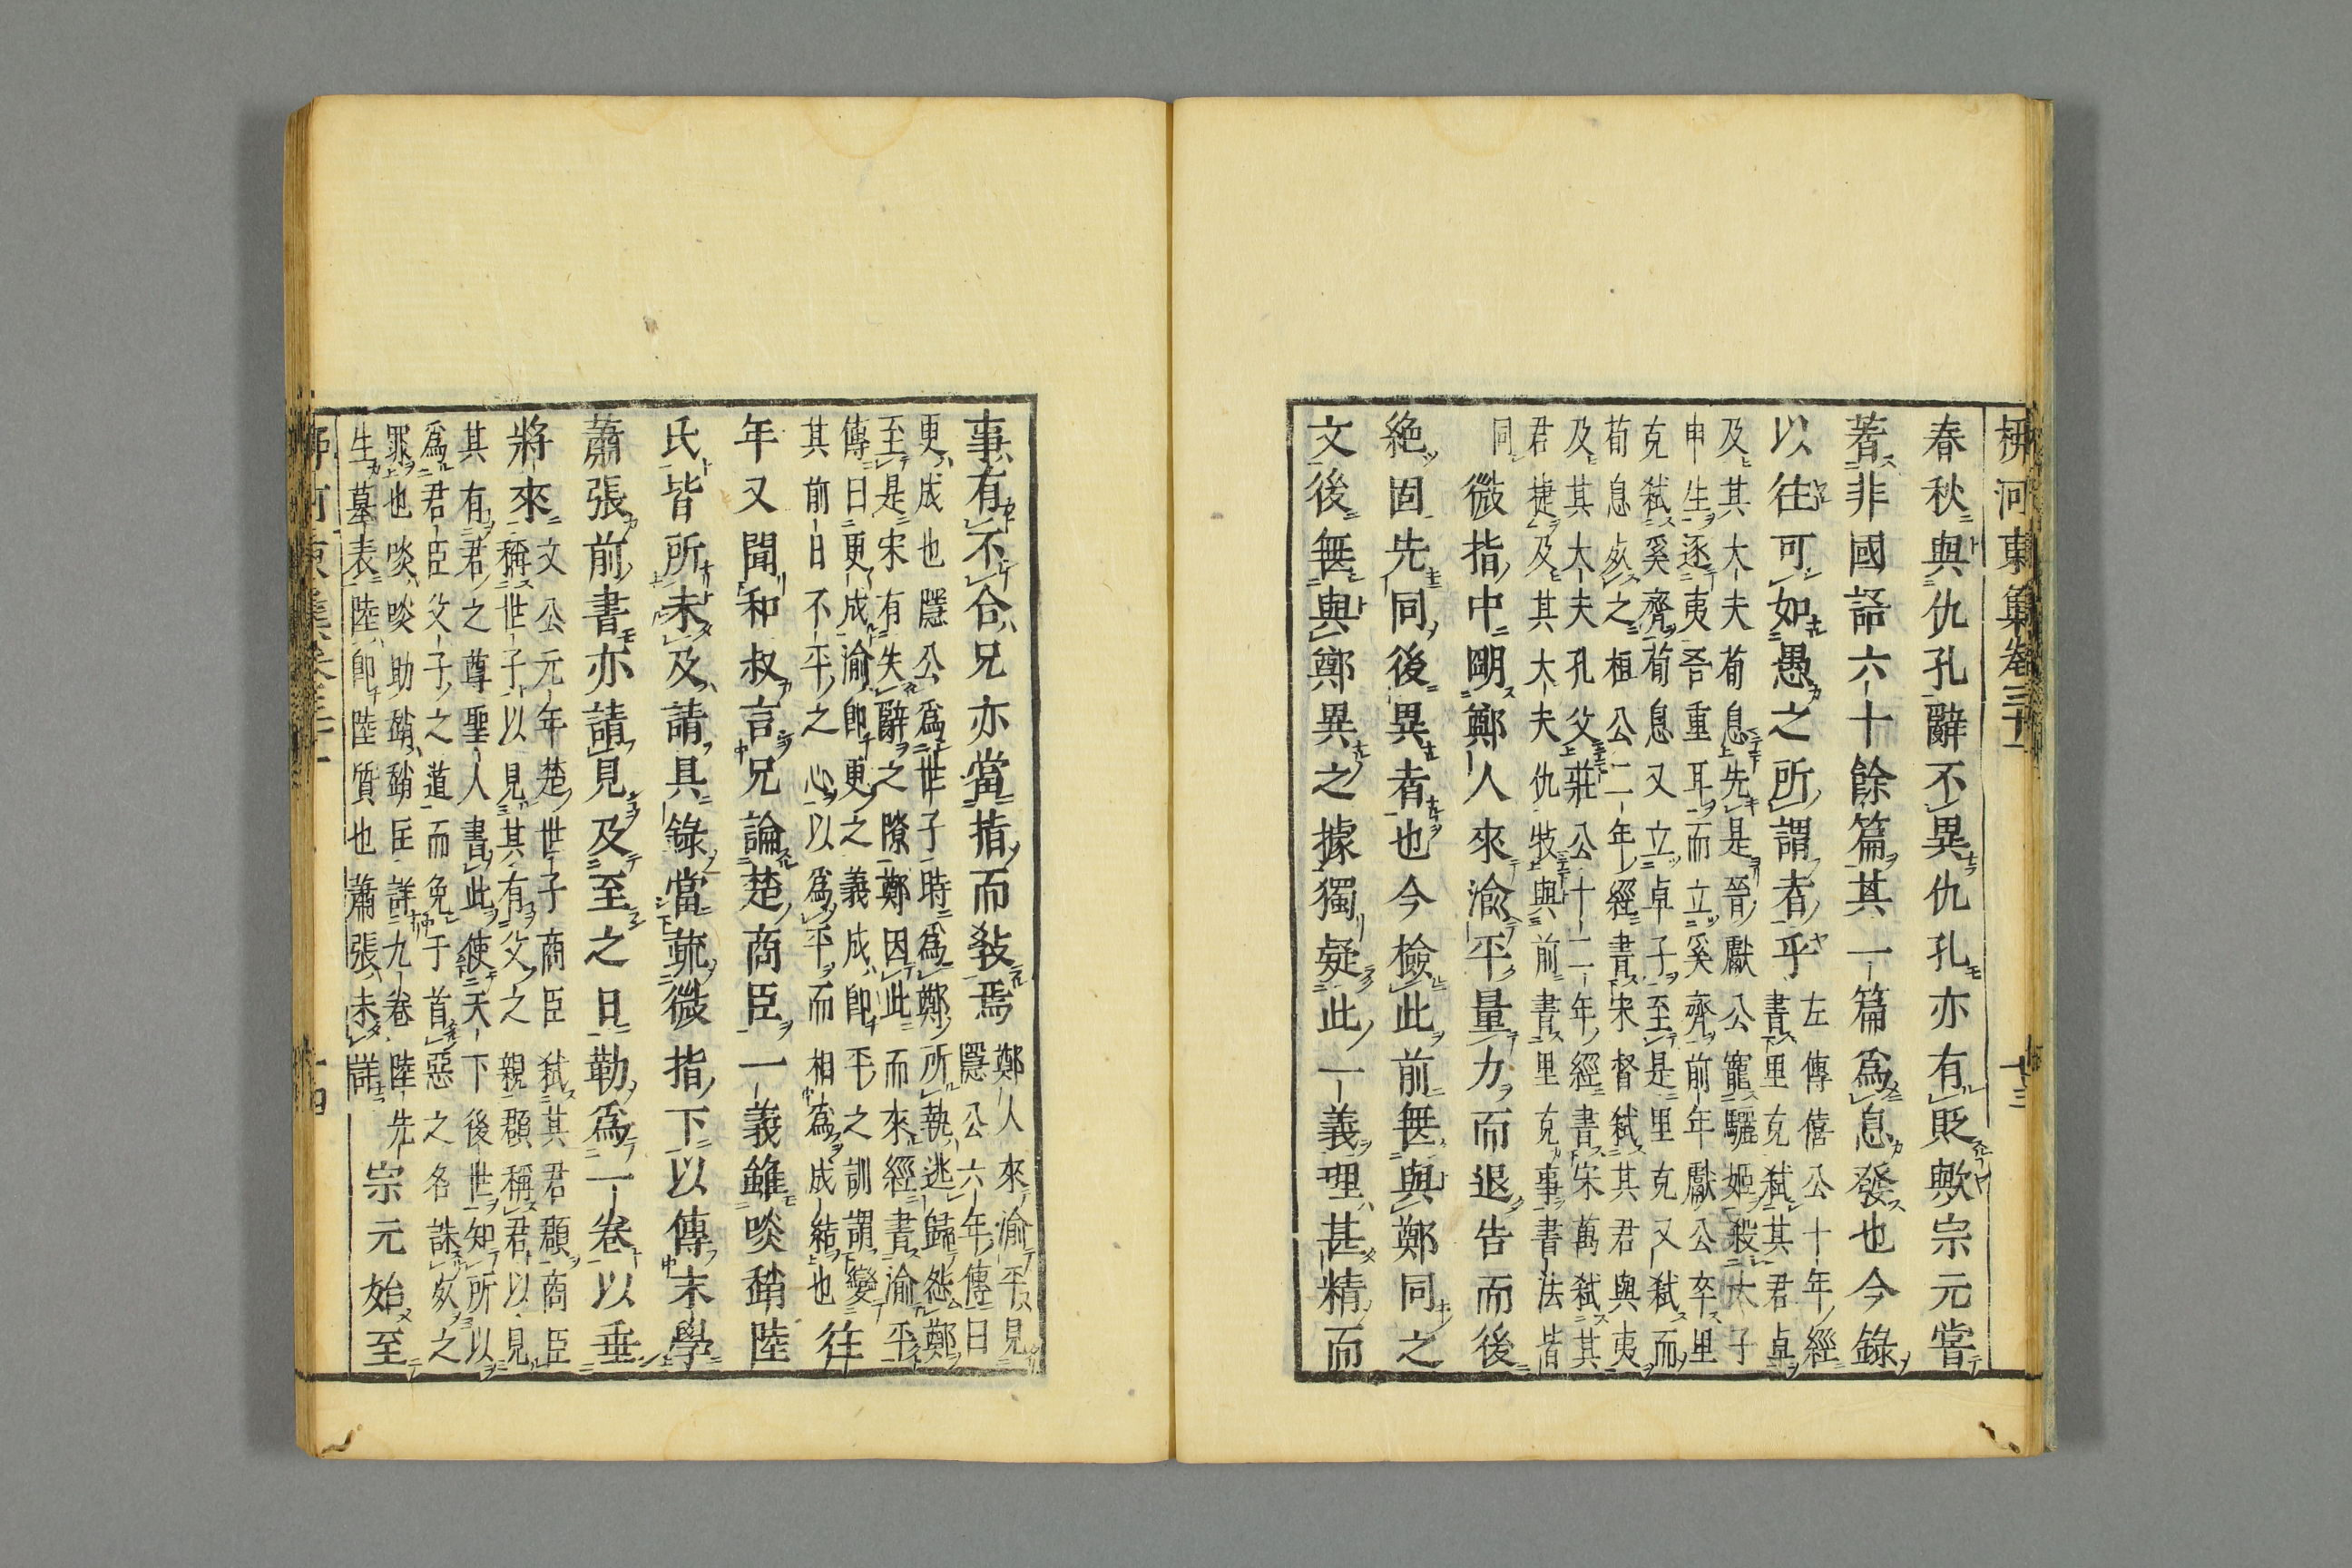 柳河東集卷三十一
十三
春秋與仇孔辭不異仇孔亦有貶歟宗元嘗
著非國語六十餘篇其一篇爲息發也今錄
以往可如愚之所謂者乎
左傳僖公十年經
書里克弑其君卓
及其大夫荀息先是晉獻公寵驪姬殺大子
申生逐夷吾重耳而立奚齊前年獻公卒里
克弑奚齊荀息又立卓子至是里克又弑而
荀息死之桓公二年經書宋督弑其君與夷
及其大夫孔父莊公十二年經書宋萬弑其
君捷及其大夫仇牧與前書里克事書法皆
同
微指中明鄭人來渝平量力而退告而後
絶固先同後異者也今檢此前無與鄭同之
文後無與鄭異之據獨疑此一義理甚精而
事有不合兄亦當指而敎焉
鄭人來渝平見
隱公六年傳曰
更成也隱公爲世子時爲鄭所執逃歸怨鄭
至是宋有失辭之隙鄭因此而來經書渝平
傳曰更成渝卽更之義成卽平之訓謂變
其前日不平之心以爲平而相爲成結也
往
年又聞和叔言兄論楚商臣一義雖啖趙陸
氏皆所未及請具錄當疏微指下以傳末學
蕭張前書亦請見及至之日勒爲一卷以垂
將來
文公元年楚世子商臣弑其君頵商臣
稱世子以見其有父之親頵稱君以見
其有君之尊聖人書此使天下後世知所以
爲君臣父子之道而免于首惡之名誅死之
罪也啖啖助趙趙匡詳九卷陸先
生墓表陸卽陸質也蕭張未詳
宗元始至
柳河東集卷三十一
十四